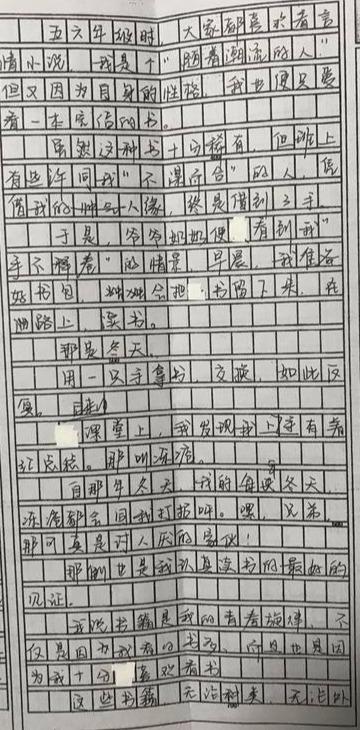 五六年级时，大家都喜欢看言
情小说，我是个"随着潮流的人"
但又因为自身的性格，我也便只爱
看一本完结的书。
虽然这种书十分稀有，但班上
有些许同我"不谋而合"的人，凭
借我的人缘，终是借到了手。
于是，爷爷奶奶便看到我"
手不释卷"的情景，早晨，我准备
好书包，会把书留下来，在
路上，读书。
那是冬天。
用一只手拿书，交换，如此反
复。
课堂上，我发现我上有着
红点点。那叫冻疮。
自那年冬天，我的每年冬天，
冻疮都会同我打招呼。嘿，兄弟，
那可真是讨人厌的家伙！
那倒也是我认真读书的最好的
见证。
我说书籍是我的青春旋律，不
仅是因为我看的书多，而且也是因
为我十分喜欢看书
这些书籍，无论种类，无论外